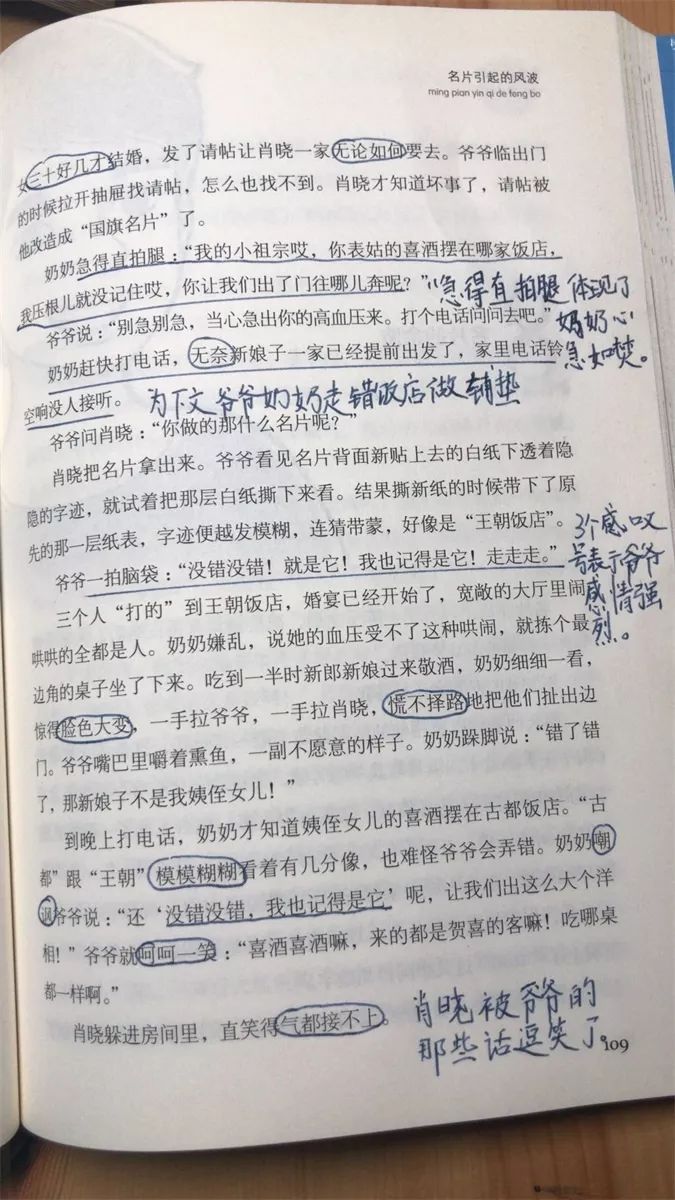 名片引起的风波
ming pian yin qi de feng bo
女三十好几才结婚，发了请帖让肖晓一家无论如何要去。爷爷临出门
的时候拉开抽屉找请帖，怎么也找不到。肖晓才知道坏事了，请帖被
他改造成“国旗名片”了。
奶奶急得直拍腿：“我的小祖宗哎，你表姑的喜酒摆在哪家饭店，
我压根儿就没记住哎，你让我们出了门往哪儿奔呢？”
“急得直拍腿”体现了
爷爷说：“别急别急，当心急出你的高血压来。打个电话问问去吧。”
奶奶心
奶奶赶快打电话，无奈新娘子一家已经提前出发了，家里电话铃
急如焚。
空响没人接听。
为下文爷爷奶奶走错饭店做铺垫
爷爷问肖晓：“你做的那什么名片呢？”
肖晓把名片拿出来。爷爷看见名片背面新贴上去的白纸下透着隐
隐的字迹，就试着把那层白纸撕下来看。结果撕新纸的时候带下了原
先的那一层纸表，字迹便越发模糊，连猜带蒙，好像是“王朝饭店”。
3个感叹
爷爷一拍脑袋：“没错没错！就是它！我也记得是它！走走走。”
号表示爷爷
三个人“打的”到王朝饭店，婚宴已经开始了，宽敞的大厅里闹
感情强
哄哄的全都是人。奶奶嫌乱，说她的血压受不了这种哄闹，就拣个最
烈。
边角的桌子坐了下来。吃到一半时新郎新娘过来敬酒，奶奶细细一看，
惊得脸色大变，一手拉爷爷，一手拉肖晓，慌不择路地把他们扯出边
门。爷爷嘴巴里嚼着熏鱼，一副不愿意的样子。奶奶跺脚说：“错了错
了，那新娘子不是我姨侄女儿！”
到晚上打电话，奶奶才知道姨侄女儿的喜酒摆在古都饭店。“古
都”跟“王朝”模模糊糊看着有几分像，也难怪爷爷会弄错。奶奶嘲
讽爷爷说：“还‘没错没错，我也记得是它’呢，让我们出这么大个洋
相！”爷爷就呵呵一笑：“喜酒喜酒嘛，来的都是贺喜的客嘛！吃哪桌
都一样啊。”
肖晓躲进房间里，直笑得气都接不上。
肖晓被爷爷的
那些话逗笑了。
109